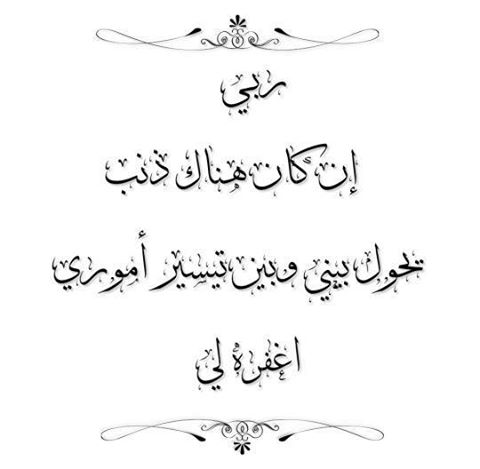 ربي
إن كان هناك ذنب
تحول بيني وبين تيسير أموري
اغفره لي